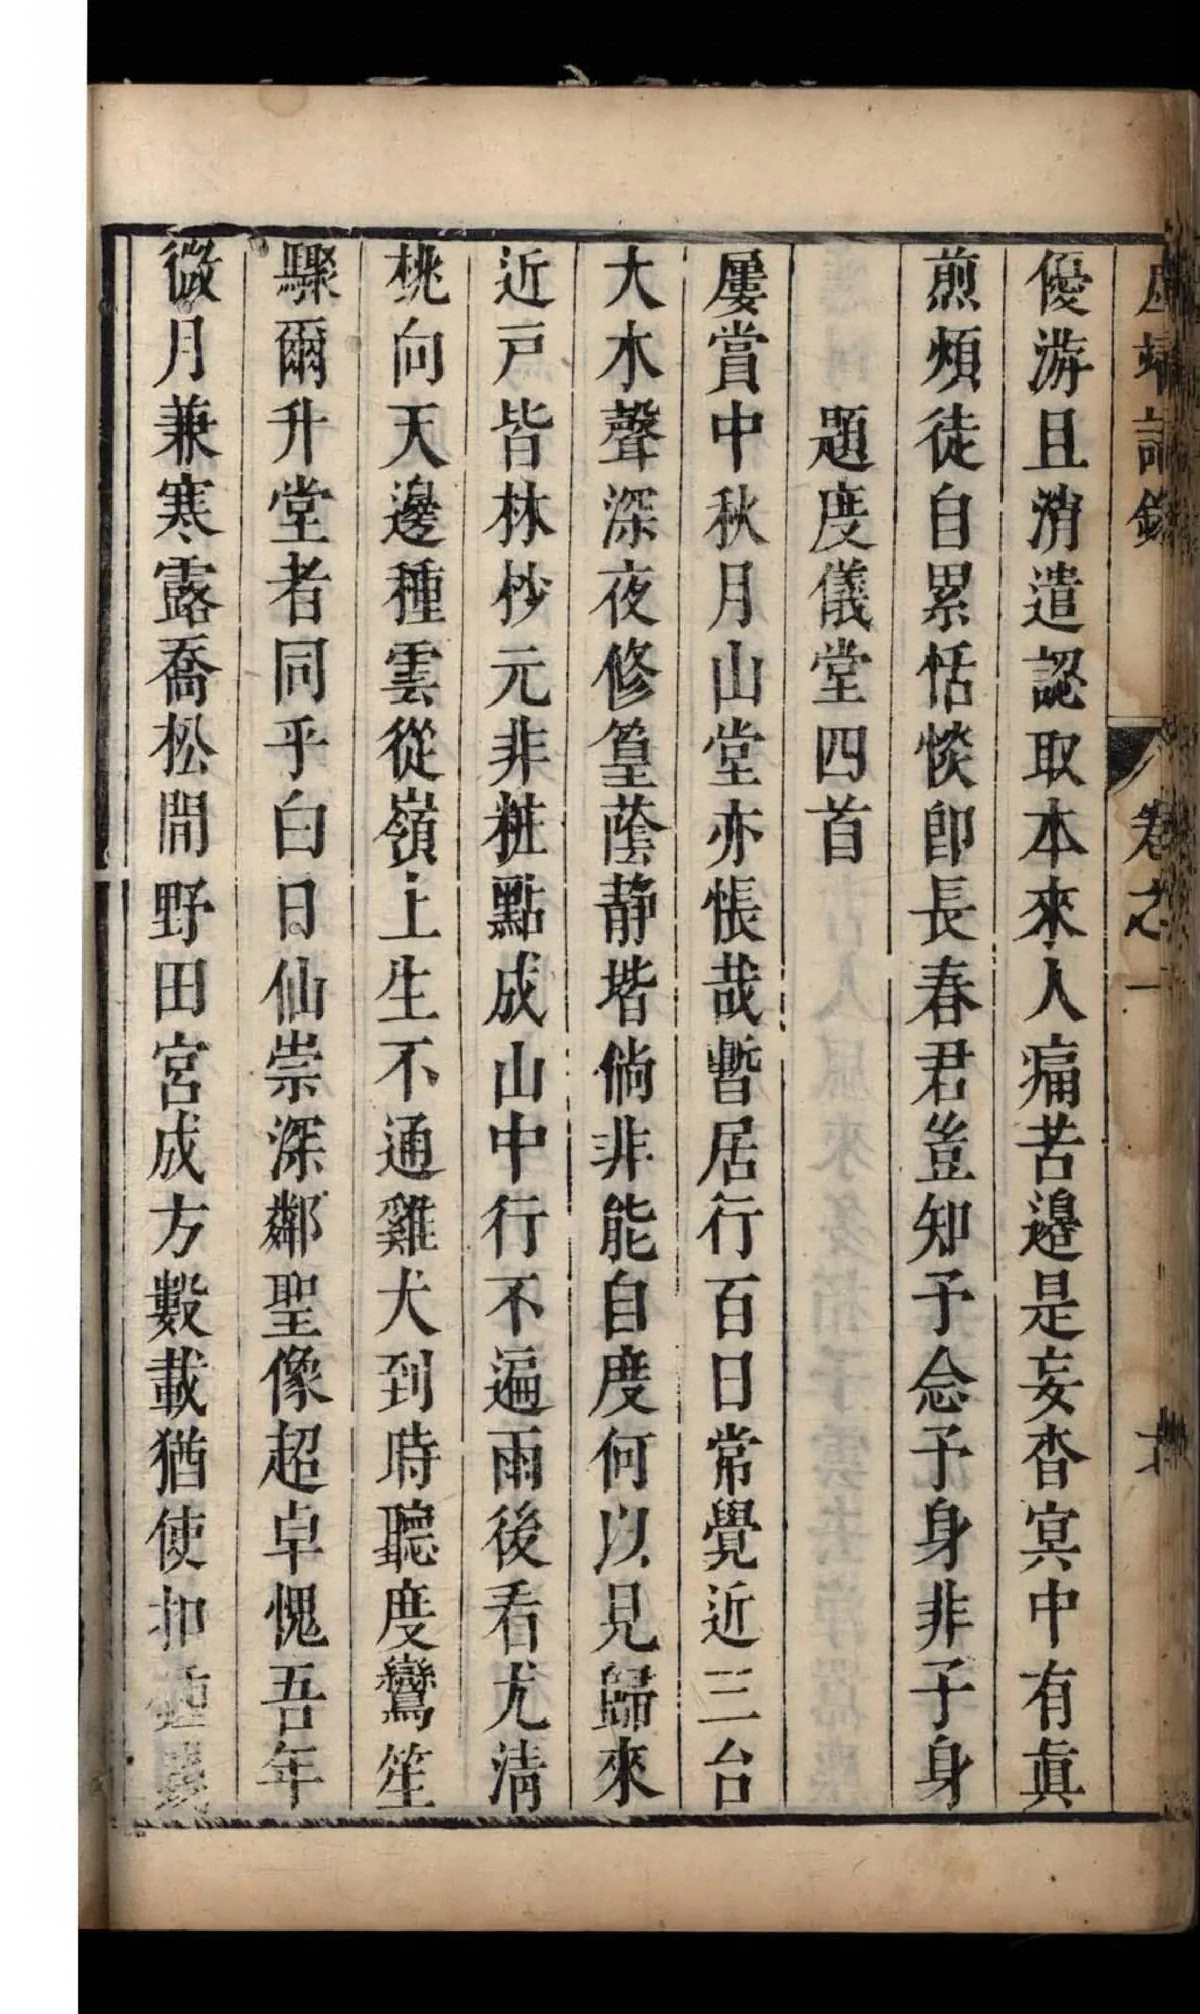 卷之一
優游且消遣認取本來人痛苦邉是妄杳冥中有眞
煎煩徒自累恬惔即長春君豈知予念予身非子身
題度儀堂四首
屢賞中秋月山堂亦悵哉暫居行百日常覺近三台
大木聲深夜修篁蔭靜堦倘非能自度何以見歸來
近戸皆林杪元非粧點成山中行不遍雨後看尤清
桃向天邊種雲從嶺上生不通雞犬到時聽度鸞笙
驟爾升堂者同乎白日仙崇深鄰聖像超卓愧吾年
微月兼寒露喬松間野田宮成方數載猶使抑